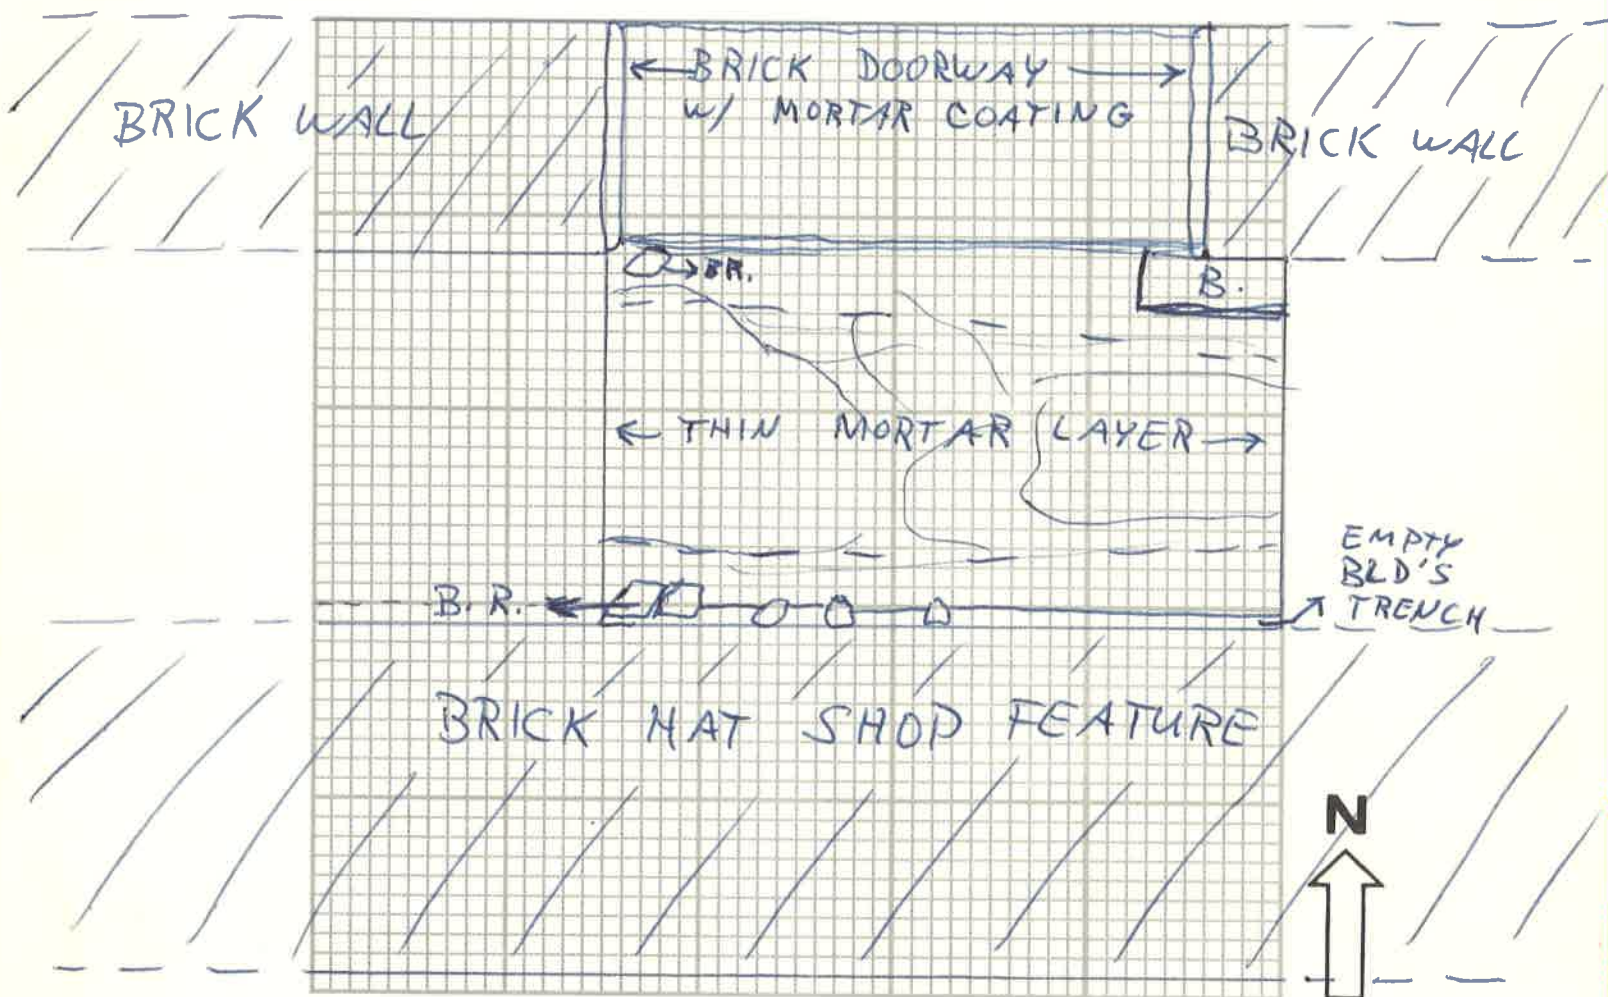 ← BRICK DOORWAY →
w/ MORTAR COATING
BRICK WALL
BRICK WALL
→ BR.
B.
← THIN MORTAR LAYER →
EMPTY
BLD'S
TRENCH
B.R.
BRICK HAT SHOP FEATURE
N